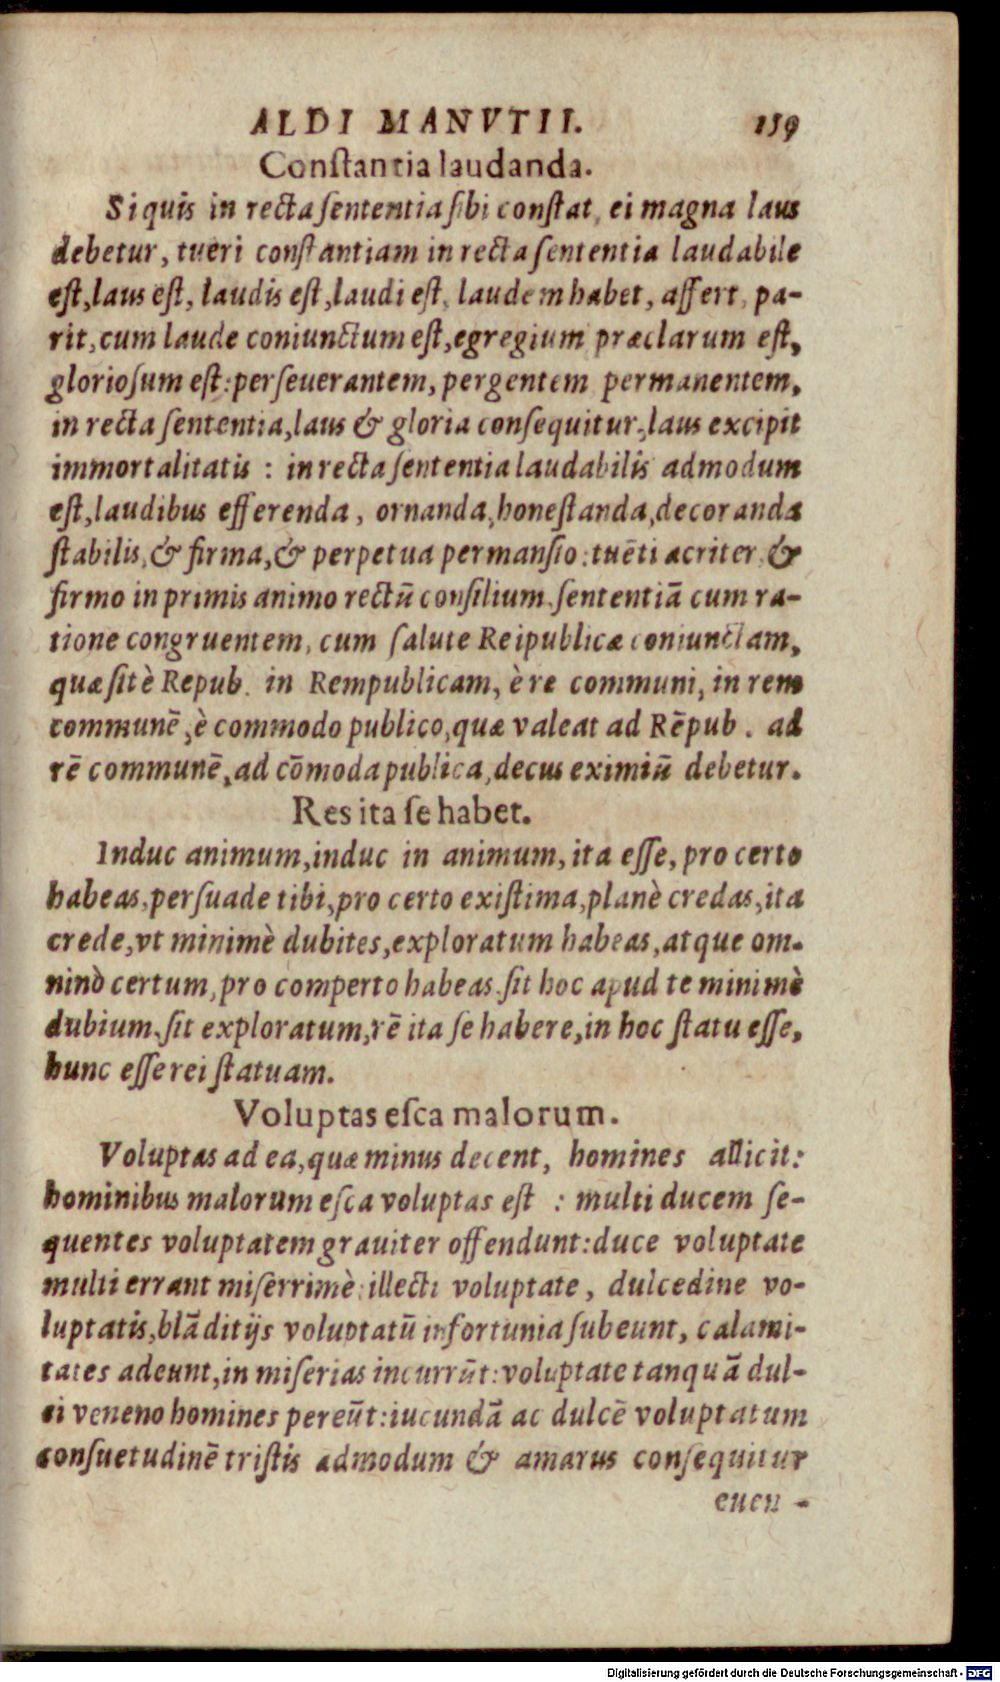 ALDI MANVTII. 159
Conſtantia laudanda.
Si quis in recta ſententia ſibi conſtat, ei magna laus
debetur, tueri conſtantiam in recta ſententia laudabile
eſt, laus eſt, laudis eſt, laudi eſt, laudem habet, affert, pa-
rit, cum laude coniunctum eſt, egregium præclarum eſt,
glorioſum eſt: perſeuerantem, pergentem permanentem,
in recta ſententia, laus & gloria conſequitur, laus excipit
immortalitatis : in recta ſententia laudabilis admodum
eſt, laudibus efferenda, ornanda, honeſtanda, decoranda
ſtabilis, & firma, & perpetua permanſio: tuēti acriter &
firmo in primis animo rectū conſilium, ſententiā cum ra-
tione congruentem, cum ſalute Reipublicæ coniunctam,
quæ ſit è Repub. in Rempublicam, è re communi, in rem
communē, è commodo publico, quæ valeat ad Rēpub. ad
rē communē, ad cōmoda publica, decus eximiū debetur.
Res ita ſe habet.
Induc animum, induc in animum, ita eſſe, pro certo
habeas, perſuade tibi, pro certo exiſtima, planè credas, ita
crede, vt minimè dubites, exploratum habeas, atque om-
ninò certum, pro comperto habeas. ſit hoc apud te minimè
dubium, ſit exploratum, rē ita ſe habere, in hoc ſtatu eſſe,
hunc eſſe rei ſtatuam.
Voluptas eſca malorum.
Voluptas ad ea, quæ minus decent, homines allicit:
hominibus malorum eſca voluptas eſt : multi ducem ſe-
quentes voluptatem grauiter offendunt: duce voluptate
multi errant miſerrimè: illecti voluptate, dulcedine vo-
luptatis, blāditijs voluptatū infortunia ſubeunt, calami-
tates adeunt, in miſerias incurrūt: voluptate tanquā dul-
ci veneno homines pereūt: iucundā ac dulcē voluptatum
conſuetudinē triſtis admodum & amarus conſequitur
euen-
Digitalisierung gefördert durch die Deutsche Forschungsgemeinschaft - DFG